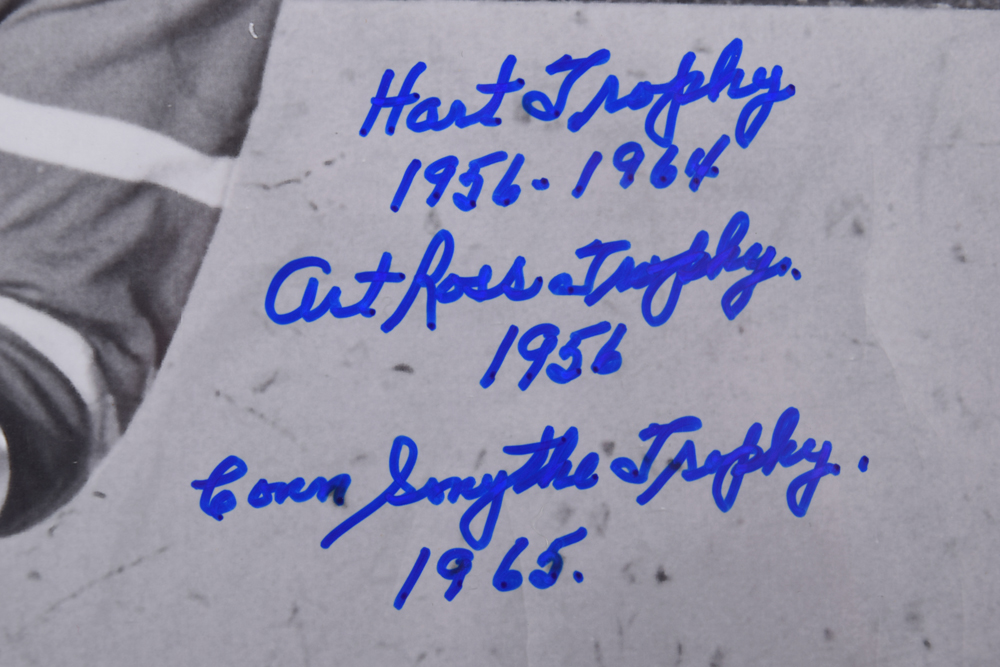 Hart Trophy
1956-1964
Art Ross Trophy.
1956
Conn Smythe Trophy.
1965.